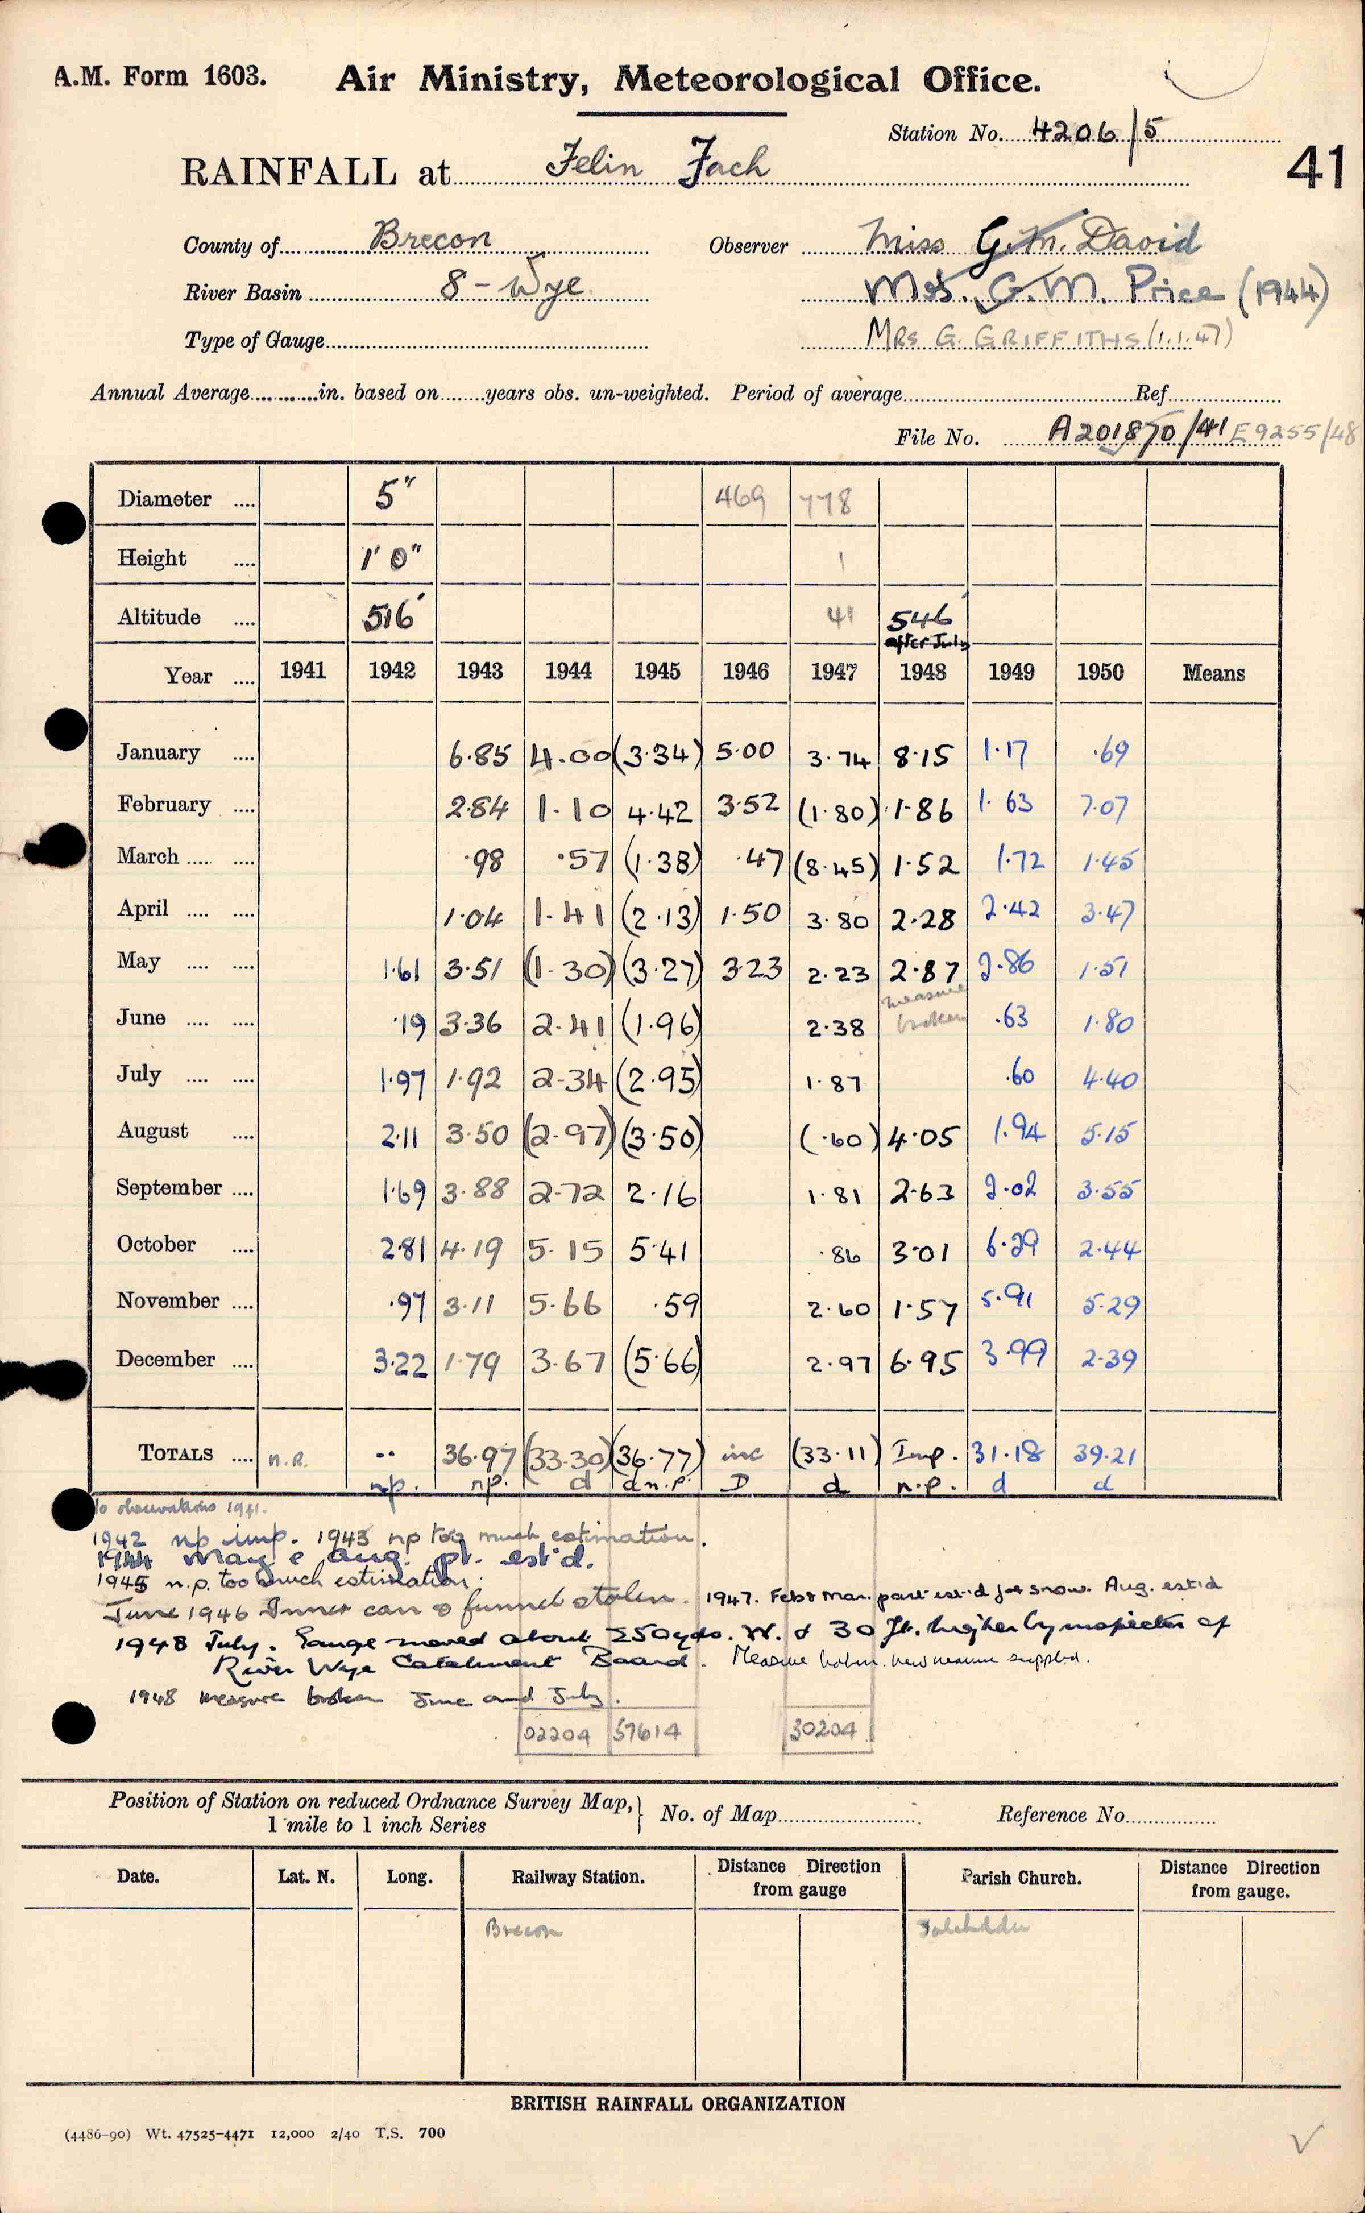 A.M. Form 1603. Air Ministry, Meteorological Office.
Station No. 4206/5
RAINFALL at Felin Fach
41
County of Brecon Observer Miss G.M. David
River Basin 8 - Wye Mrs. G.M. Price (1944)
Type of Gauge MRS G. GRIFFITHS (1.1.47)
Annual Average in. based on years obs. un-weighted. Period of average Ref
File No. A201870/41 E9255/48
Diameter 5" 469 778
Height 1' 0" 1
Altitude 516' 41 546'
after July
Year 1941 1942 1943 1944 1945 1946 1947 1948 1949 1950 Means
January 6.85 4.00 (3.34) 5.00 3.74 8.15 1.17 .69
February 2.84 1.10 4.42 3.52 (1.80) 1.86 1.63 7.07
March .98 .57 (1.38) .47 (8.45) 1.52 1.72 1.45
April 1.04 1.41 (2.13) 1.50 3.80 2.28 2.42 3.47
May 1.61 3.51 (1.30) (3.27) 3.23 2.23 2.87 2.86 1.51
June .19 3.36 2.41 (1.96) 2.38 measure broken .63 1.80
July 1.97 1.92 2.34 (2.95) 1.87 .60 4.40
August 2.11 3.50 (2.97) (3.50) (.60) 4.05 1.94 5.15
September 1.69 3.88 2.72 2.16 1.81 2.63 2.02 3.55
October 2.81 4.19 5.15 5.41 .86 3.01 6.29 2.44
November .97 3.11 5.66 .59 2.60 1.57 5.91 5.29
December 3.22 1.79 3.67 (5.66) 2.97 6.95 3.99 2.39
TOTALS n.R. -- 36.97 (33.30) (36.77) inc (33.11) Imp. 31.18 39.21
n.p. n.p. d d n.p. D d n.p. d d
No observations 1941.
1942 np imp. 1943 np too much estimation.
1944 May & Aug. pt. est'd.
1945 n.p. too much estimation.
June 1946 Inner can & funnel stolen. 1947. Feb & Mar. part est'd for snow. Aug. est'd
1948 July. Gauge moved about 250 yds. W. & 30 ft. higher by inspector of
River Wye Catchment Board. Measure broken. new measure supplied.
1948 measure broken June and July.
02204 57614 30204
Position of Station on reduced Ordnance Survey Map,
1 mile to 1 inch Series
No. of Map Reference No.
Date. Lat. N. Long. Railway Station. Distance Direction from gauge Parish Church. Distance Direction from gauge.
Brecon
BRITISH RAINFALL ORGANIZATION
(4486-90) Wt. 47525-4471 12,000 2/40 T.S. 700